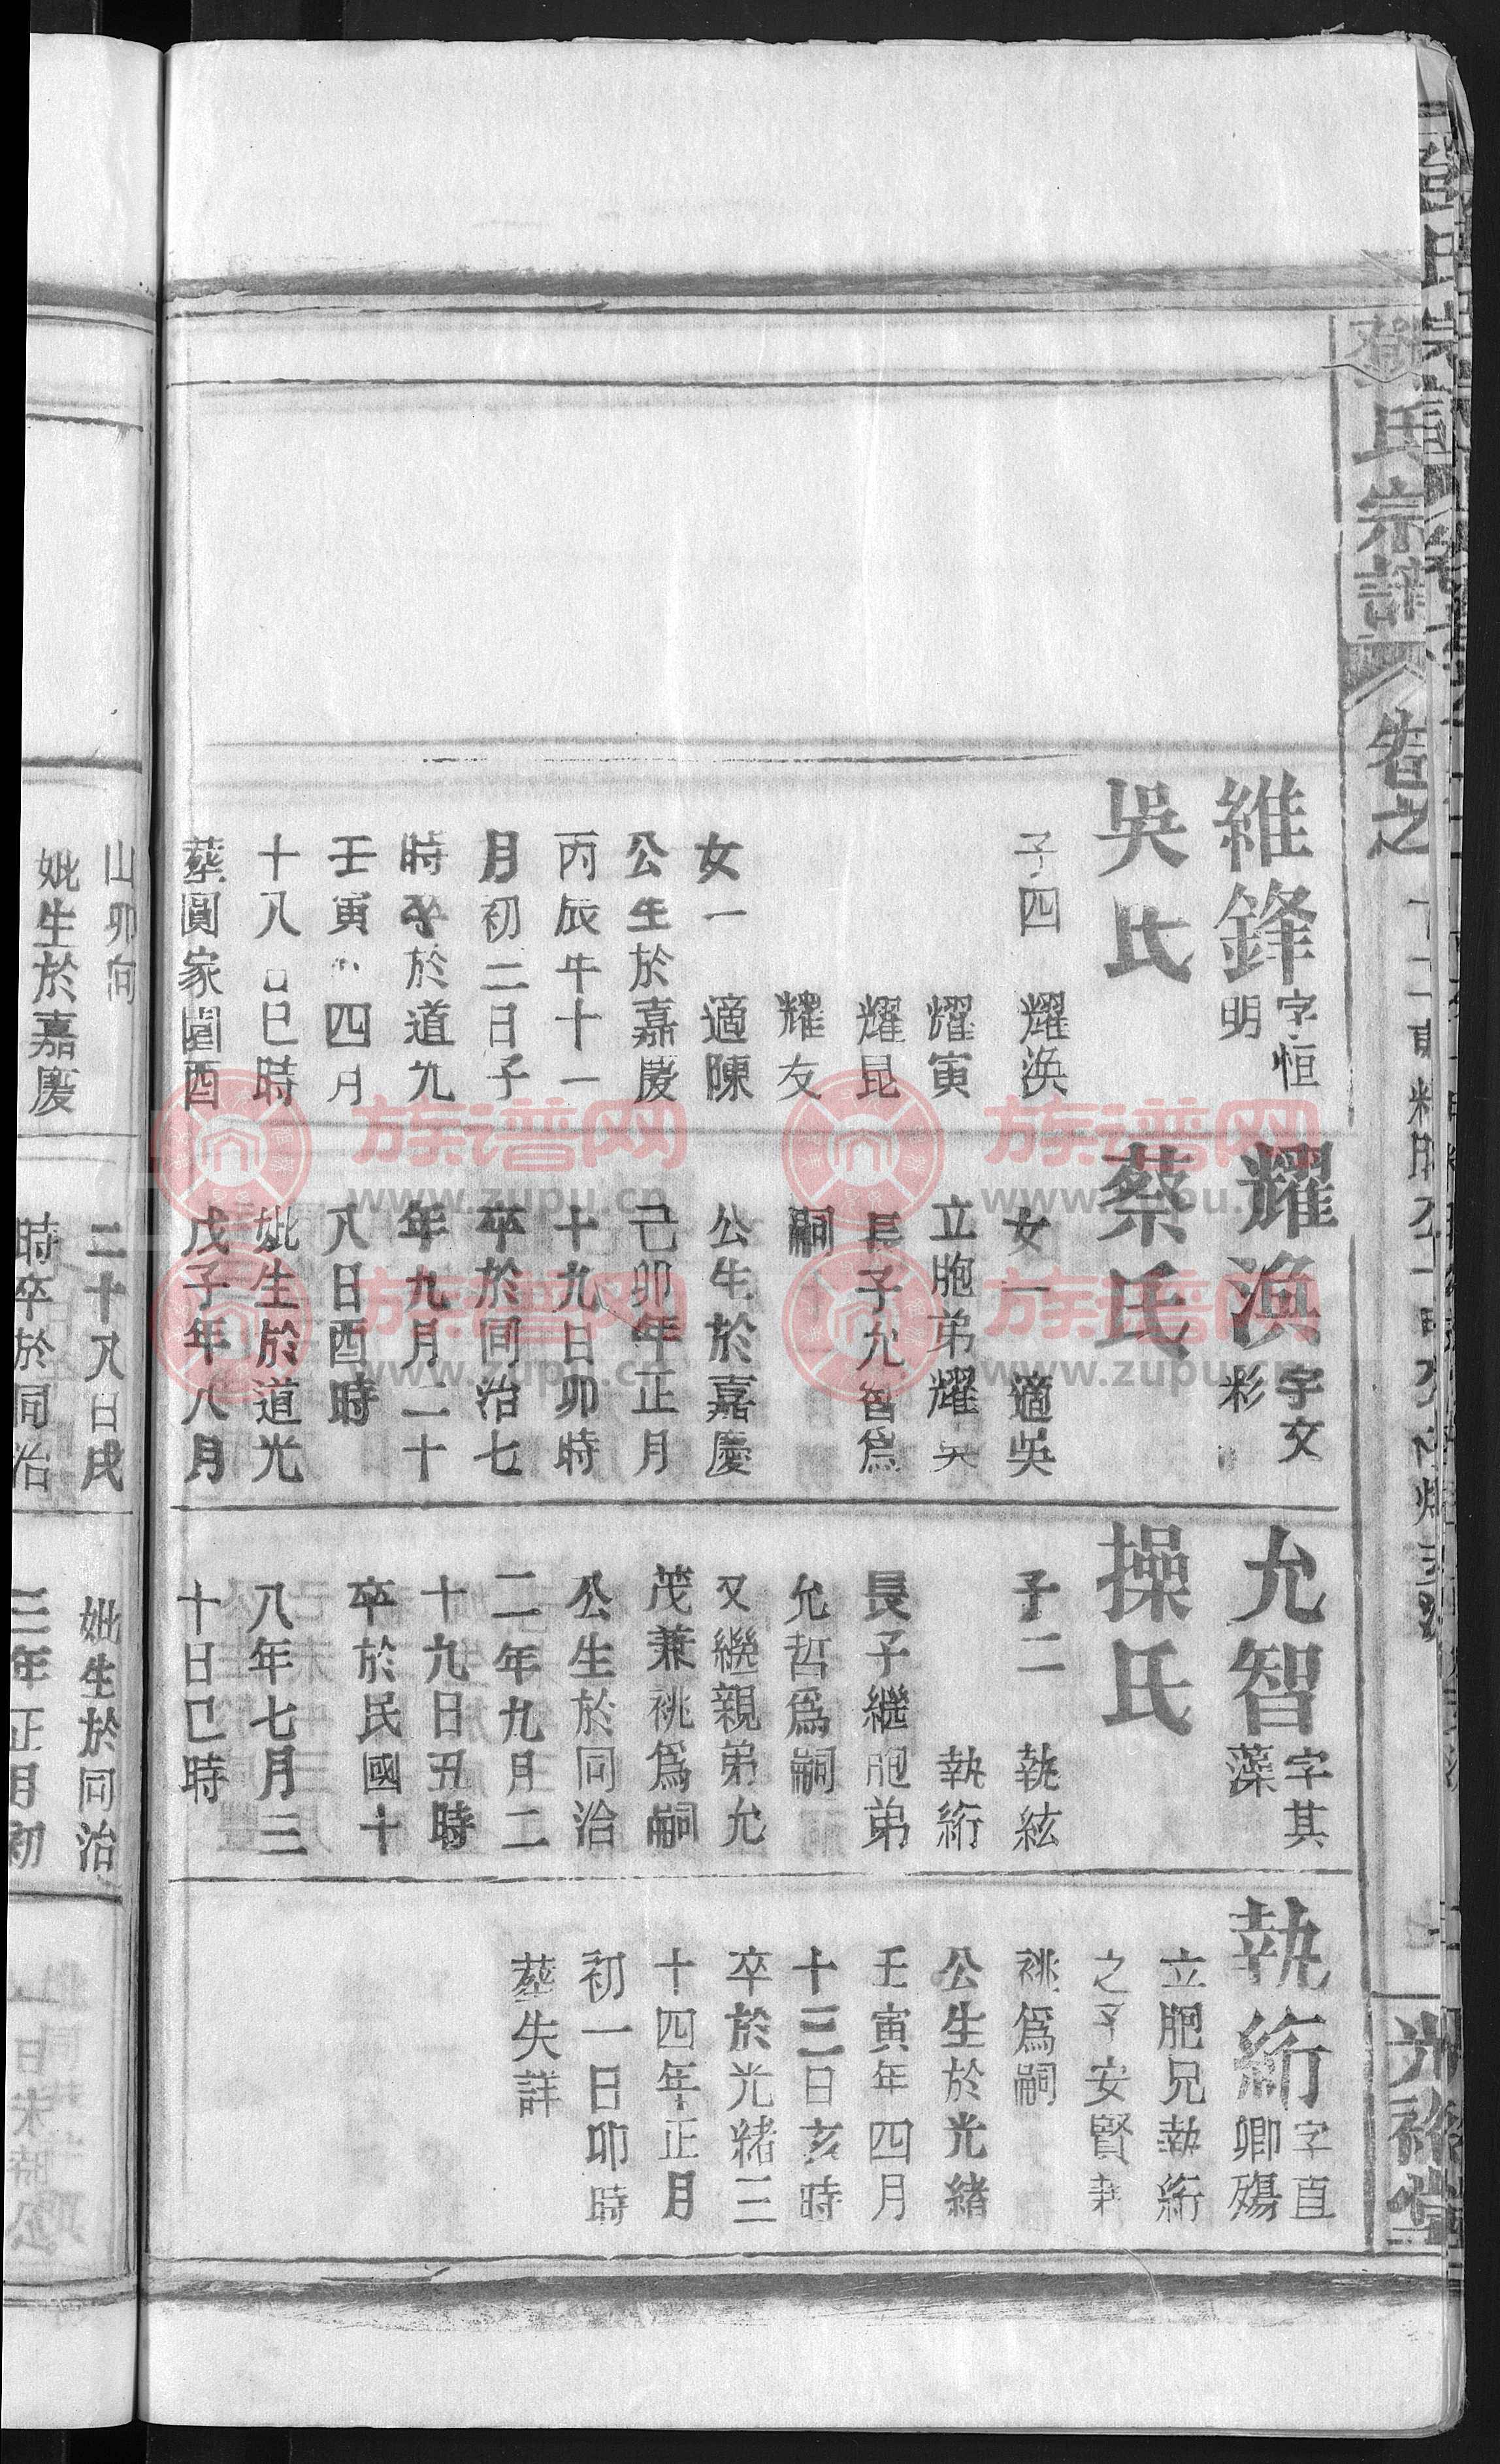 氏宗譜
卷之
光裕堂
維鋒字恒
明
吳氏
子四　耀渙
耀寅
耀昆
耀友
女一　適陳
公生於嘉慶
丙辰年十一
月初二日子
時卒於道光
壬寅年四月
十八日巳時
葬圓家園酉
耀渙字文
彩
蔡氏
女一　適吳
立胞弟耀寅
長子允智爲
嗣
公生於嘉慶
己卯年正月
十九日卯時
卒於同治七
年九月二十
八日酉時
妣生於道光
戊子年八月
允智字其
藻
操氏
子二　執絃
執絎
長子繼胞弟
允哲爲嗣
又繼親弟允
茂兼祧爲嗣
公生於同治
二年九月二
十九日丑時
卒於民國十
八年七月三
十日巳時
執絎字直
卿殤
立胞兄執絃
之子安賢兼
祧爲嗣
公生於光緒
壬寅年四月
十三日亥時
卒於光緒三
十四年正月
初一日卯時
葬失詳
山卯向
妣生於嘉慶
二十八日戌
時卒於同治
妣生於同治
三年正月初
一日未時